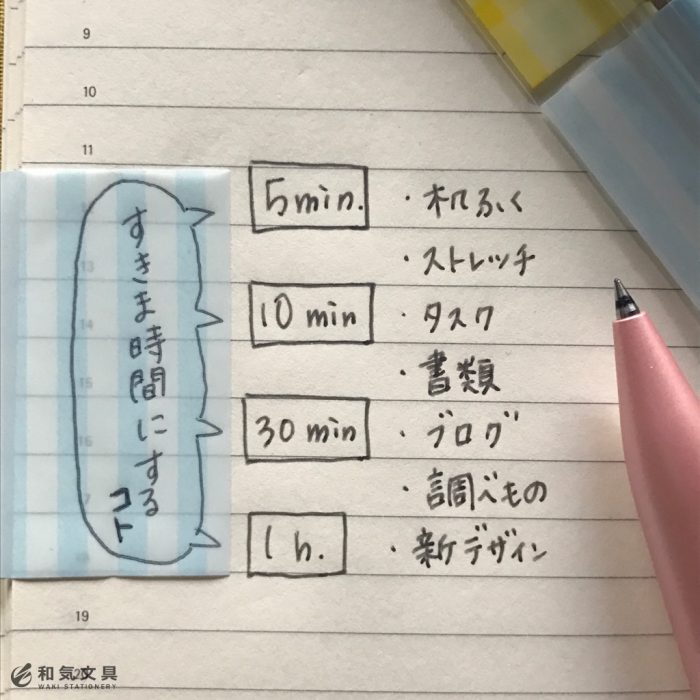 9
10
11
すきま時間にする
コト
13
14
15
16
5min.
・机ふく
・ストレッチ
10 min
・タスク
・書類
30 min
・ブログ
・調べもの
1 h.
・新デザイン
19
和気文具
WAKI STATIONERY